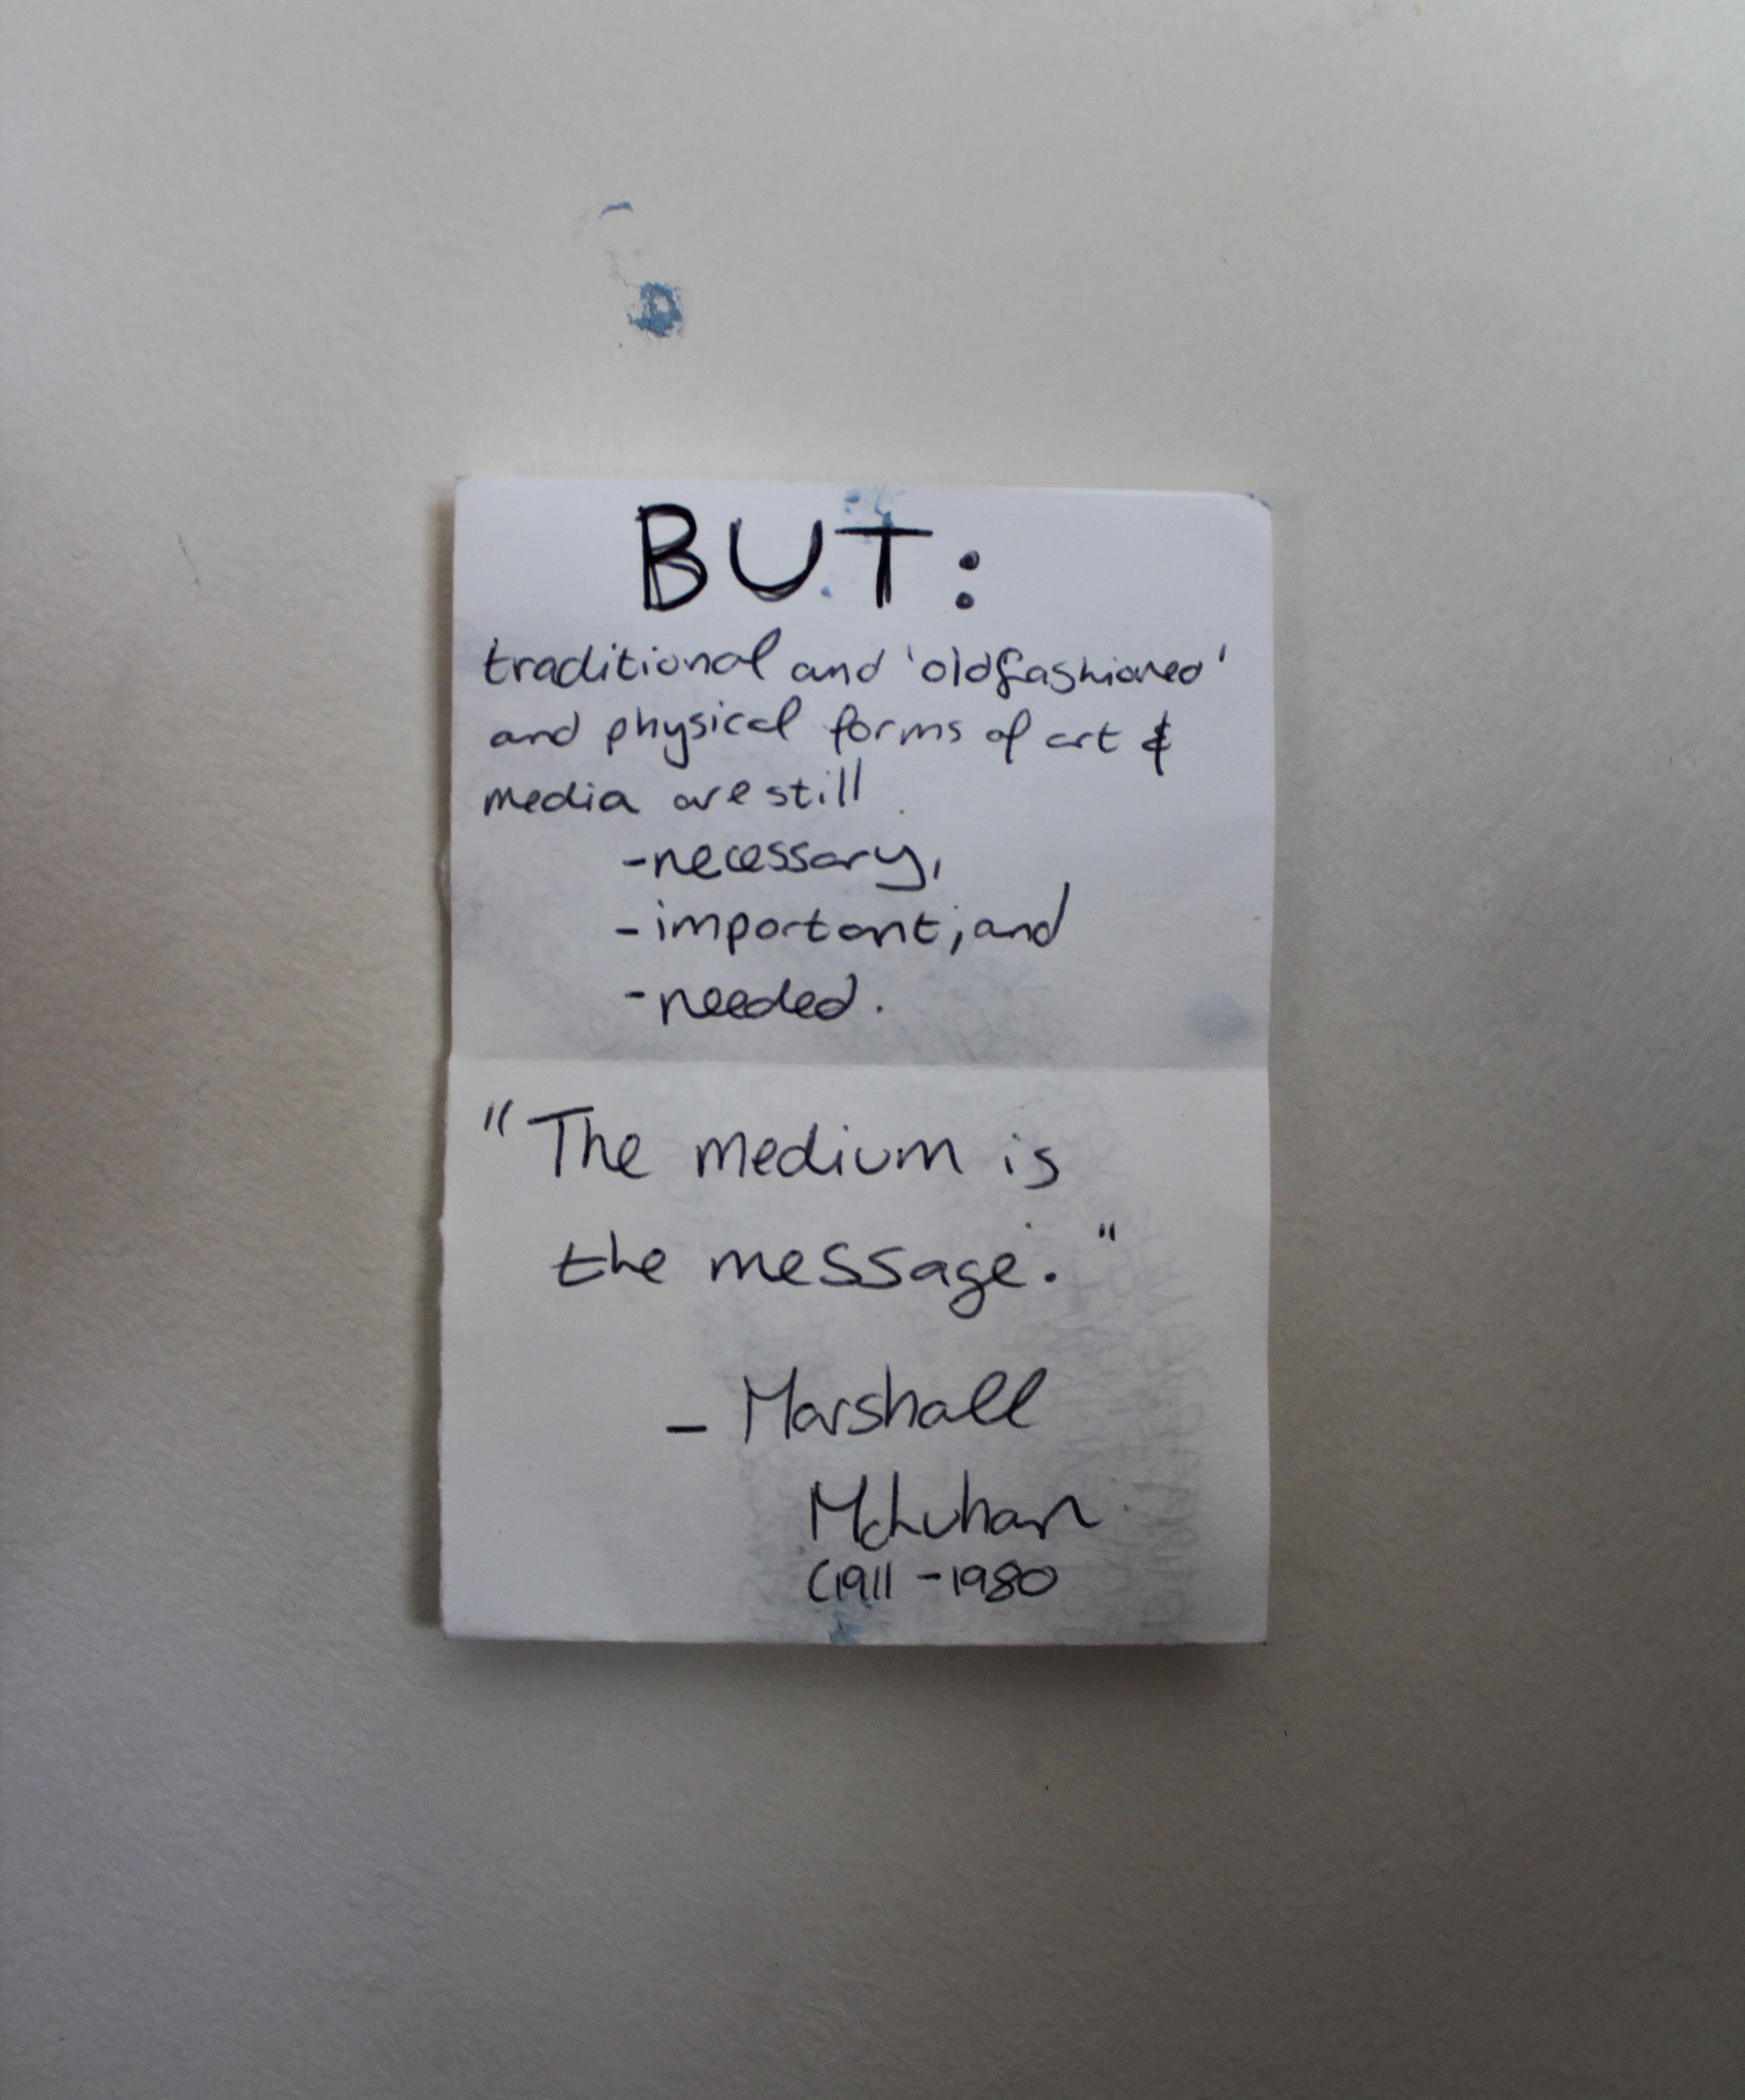 BUT:
traditional and 'oldfashioned'
and physical forms of art &
media are still
-necessary,
-important, and
-needed.
"The medium is
the message."
- Marshall
McLuhan
(1911 - 1980